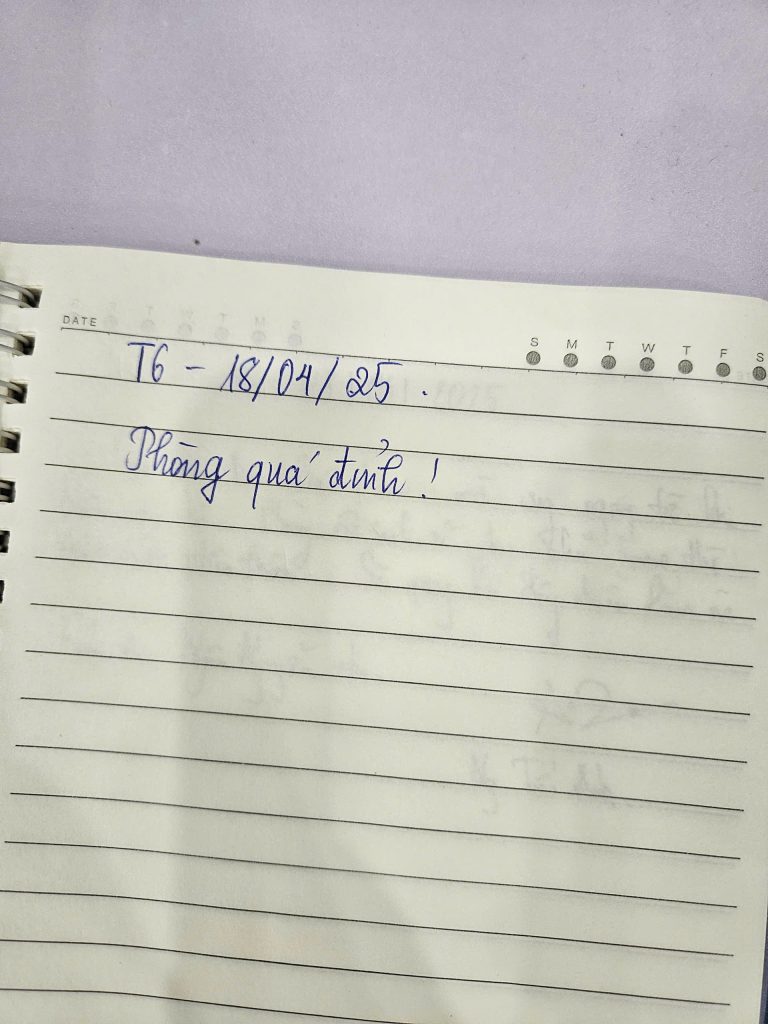 DATE
S M T W T F S
T6 - 18/04/25.
Phòng quá đỉnh!